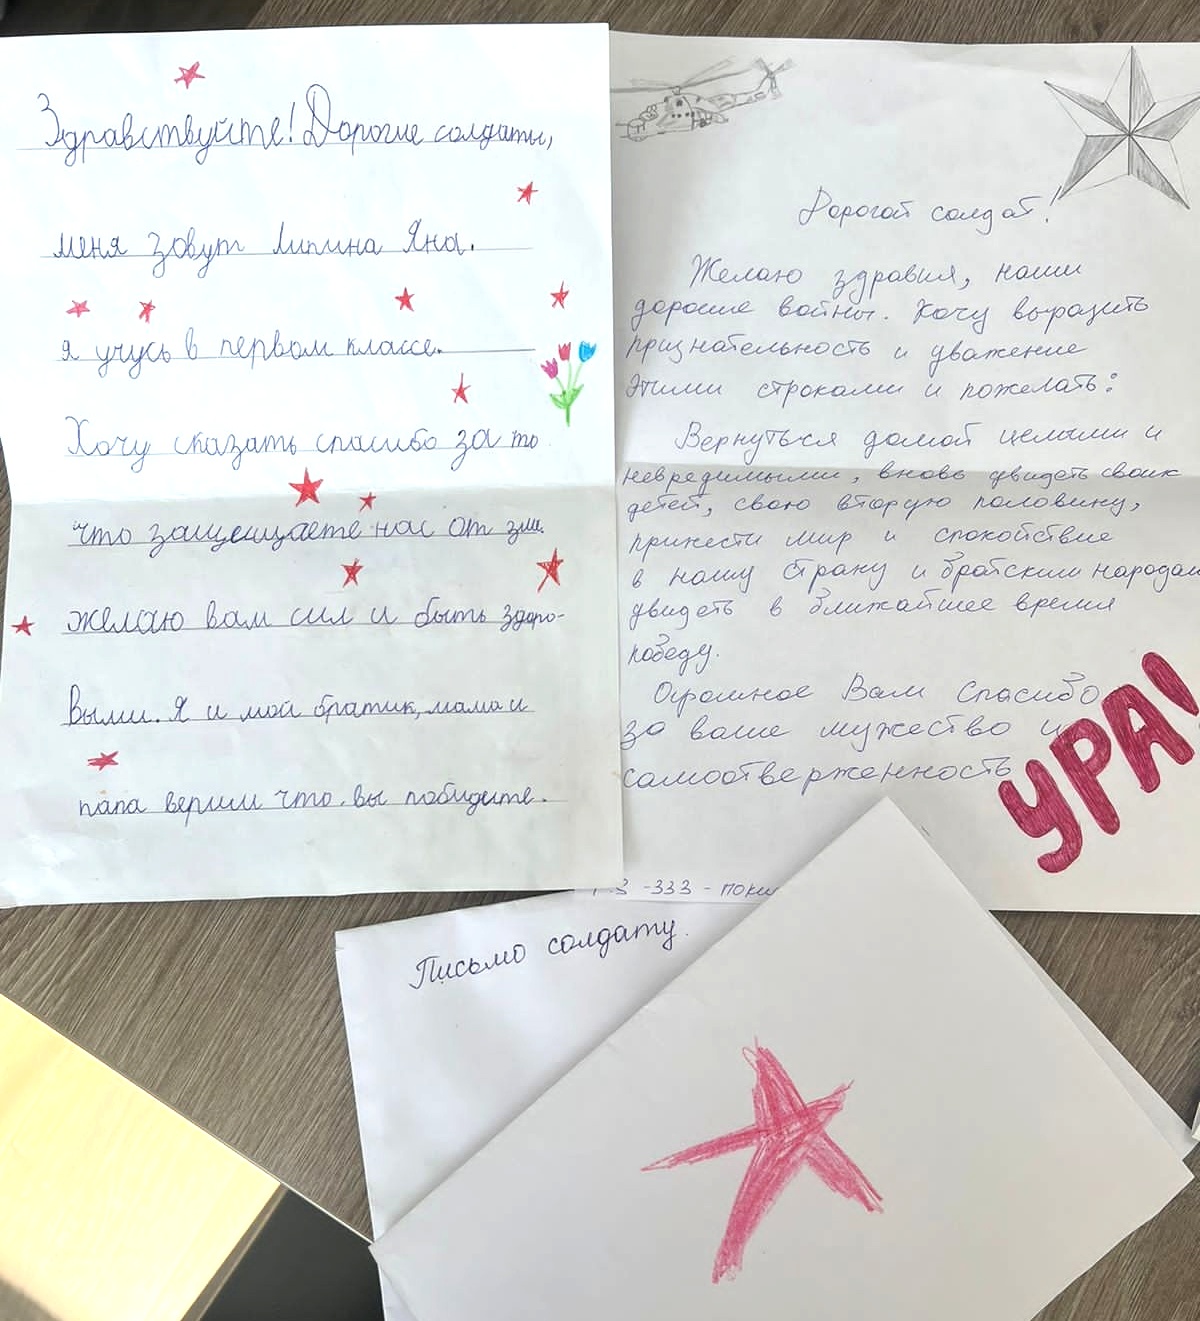 Здравствуйте! Дорогие солдаты,
меня зовут Липина Яна.
я учусь в первом классе.
Хочу сказать спасибо за то
что защищаете нас от зли.
желаю вам сил и быть здоро-
выми. Я и мой братик, мама и
папа верим что вы победите.
Дорогой солдат!
Желаю здравия, наши
дорогие войны. Хочу выразить
признательность и уважение
этими строками и пожелать:
Вернуться домой целыми и
невредимыми, вновь увидеть своих
детей, свою вторую половину,
принести мир и спокойствие
в нашу страну и братским народам
увидеть в ближайшее время
победу.
Огромное Вам Спасибо
за ваше мужество и
самоотверженность
УРА!
-333-
Письмо солдату.